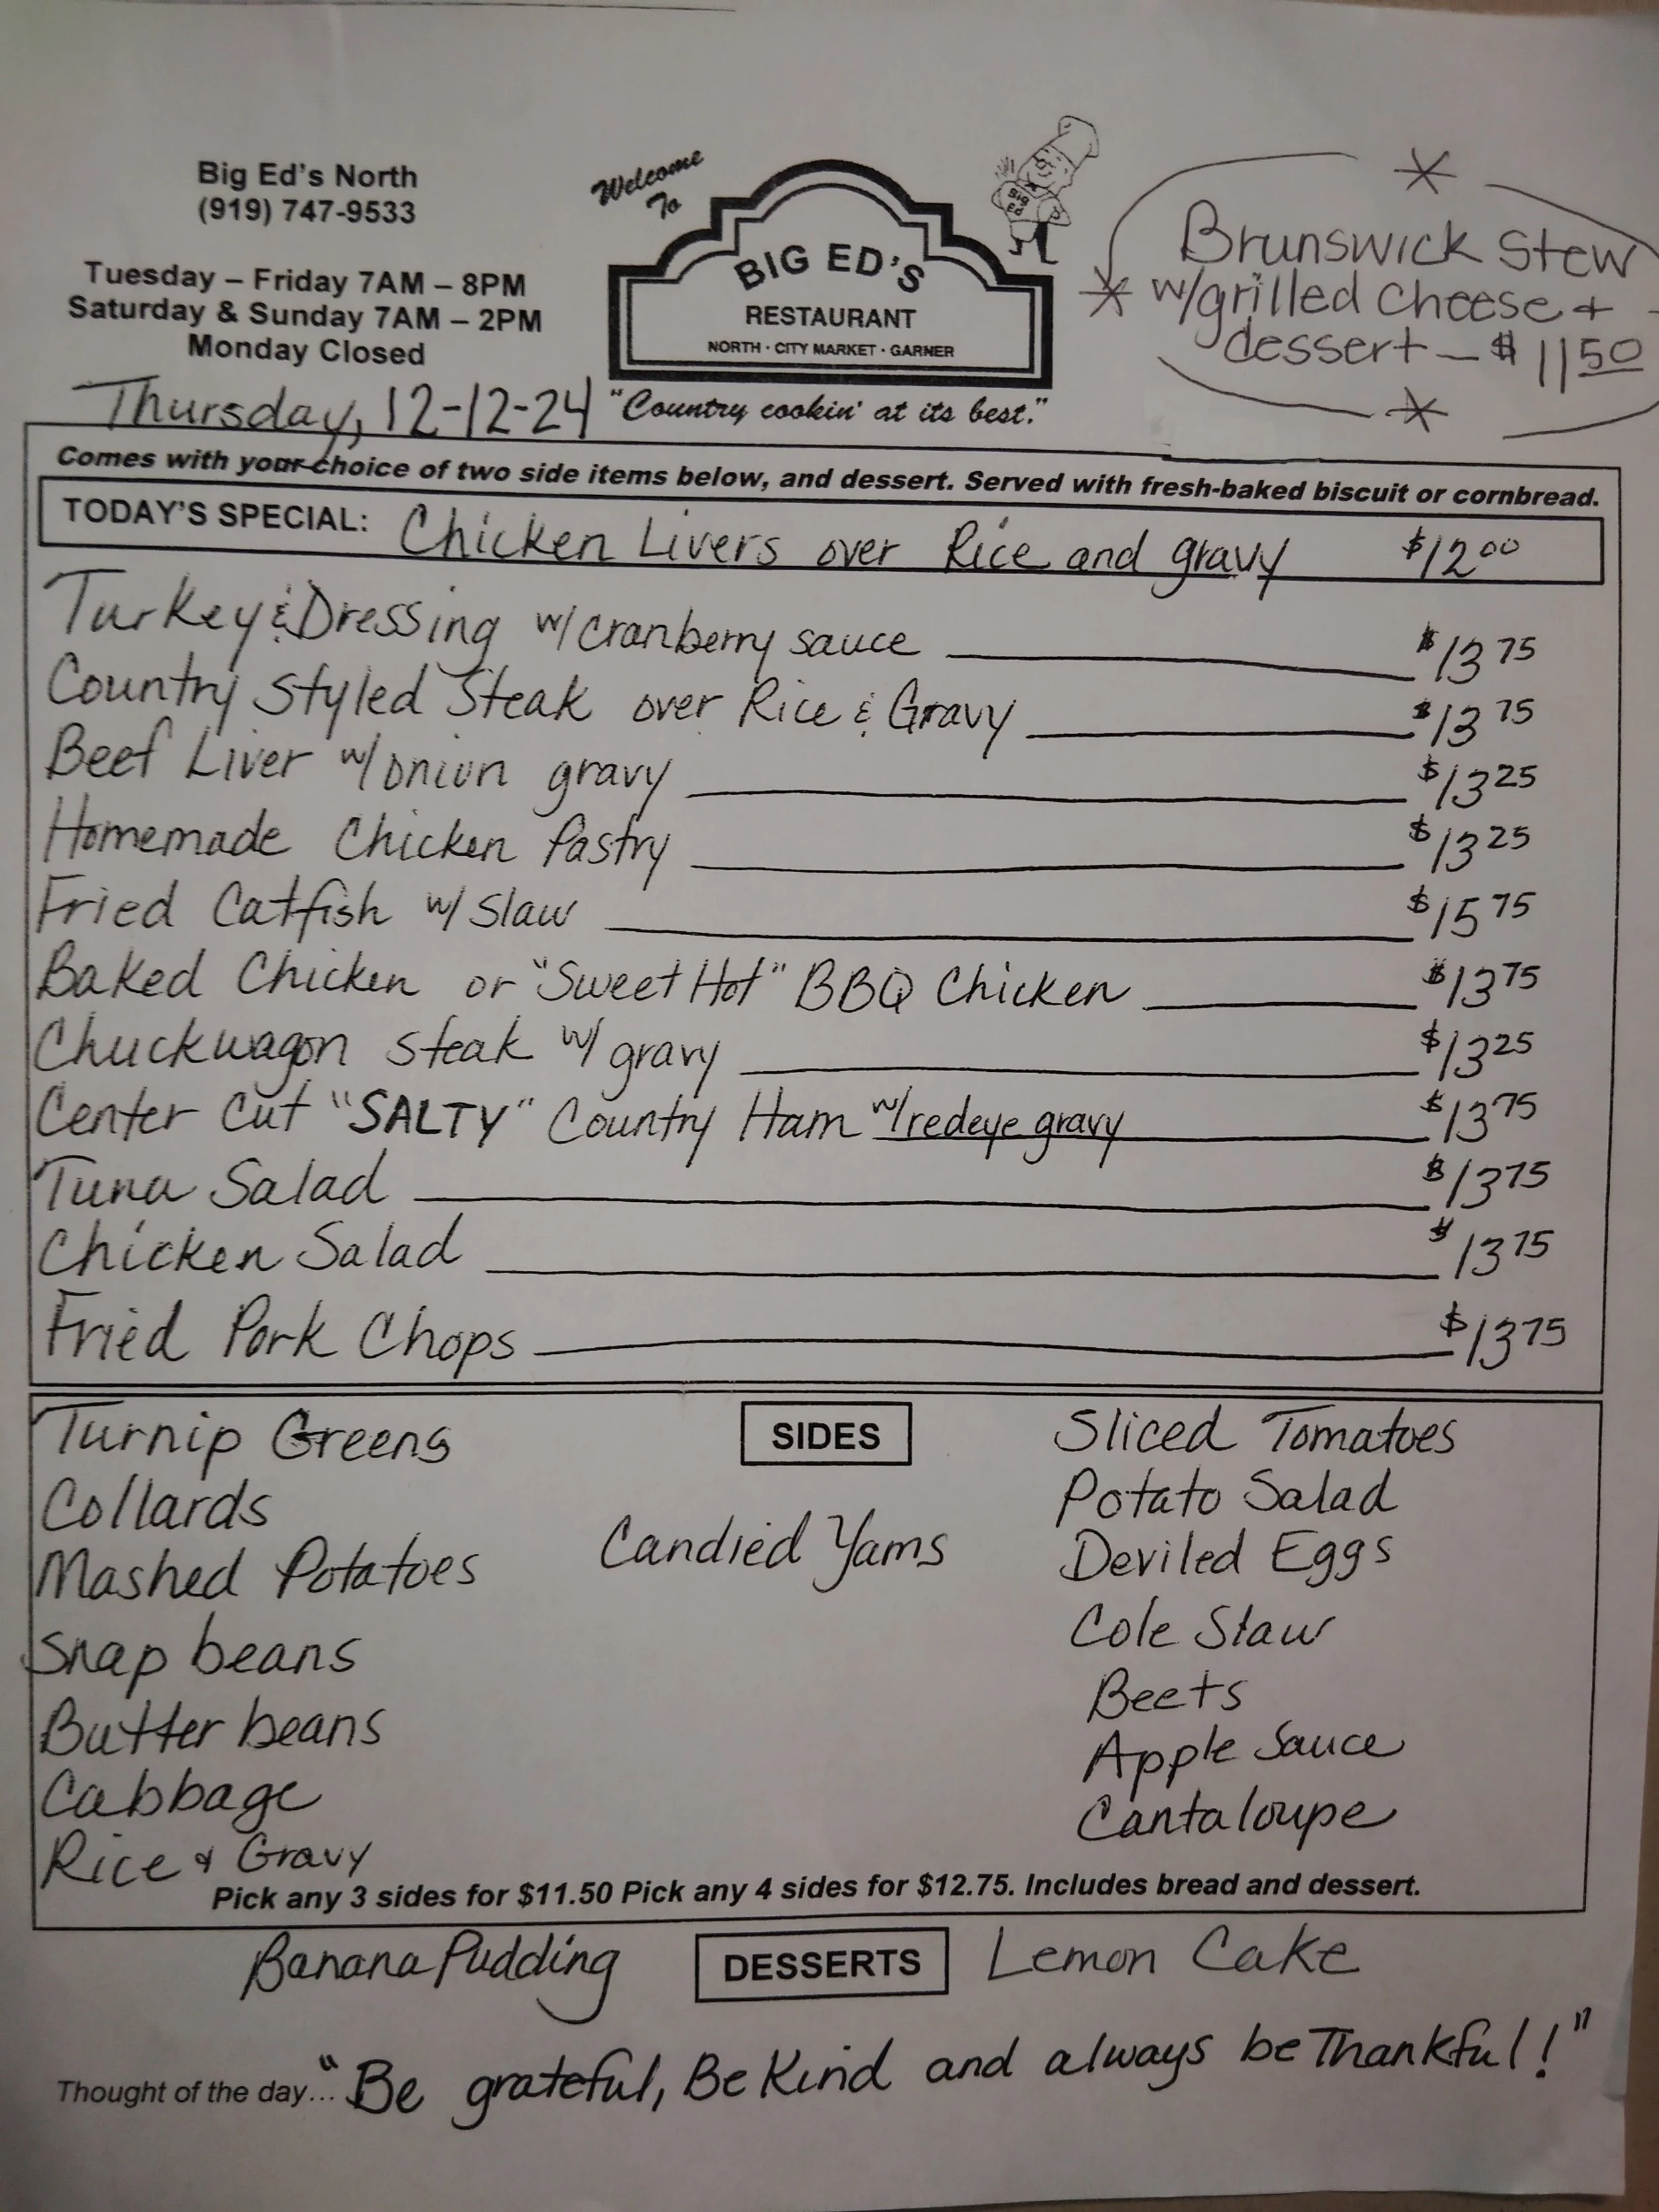 Big Ed's North
(919) 747-9533
Tuesday – Friday 7AM – 8PM
Saturday & Sunday 7AM – 2PM
Monday Closed
Thursday, 12-12-24
Welcome
To
BIG ED'S
RESTAURANT
NORTH · CITY MARKET · GARNER
"Country cookin' at its best."
Big
Ed
Brunswick Stew
w/grilled cheese +
dessert — $11 50
Comes with your choice of two side items below, and dessert. Served with fresh-baked biscuit or cornbread.
TODAY'S SPECIAL: Chicken Livers over Rice and gravy $12 00
Turkey & Dressing w/cranberry sauce $13 75
Country Styled Steak over Rice & Gravy $13 75
Beef Liver w/onion gravy $13 25
Homemade Chicken Pastry $13 25
Fried Catfish w/ Slaw $15 75
Baked Chicken or "Sweet Hot" BBQ Chicken $13 75
Chuckwagon steak w/ gravy $13 25
Center Cut "SALTY" Country Ham w/redeye gravy $13 75
Tuna Salad $13 75
Chicken Salad $13 75
Fried Pork Chops $13 75
SIDES
Turnip Greens
Collards
Mashed Potatoes
Snap beans
Butter beans
Cabbage
Rice & Gravy
Candied Yams
Sliced Tomatoes
Potato Salad
Deviled Eggs
Cole Slaw
Beets
Apple Sauce
Cantaloupe
Pick any 3 sides for $11.50 Pick any 4 sides for $12.75. Includes bread and dessert.
Banana Pudding DESSERTS Lemon Cake
Thought of the day... "Be grateful, Be Kind and always be Thankful!"